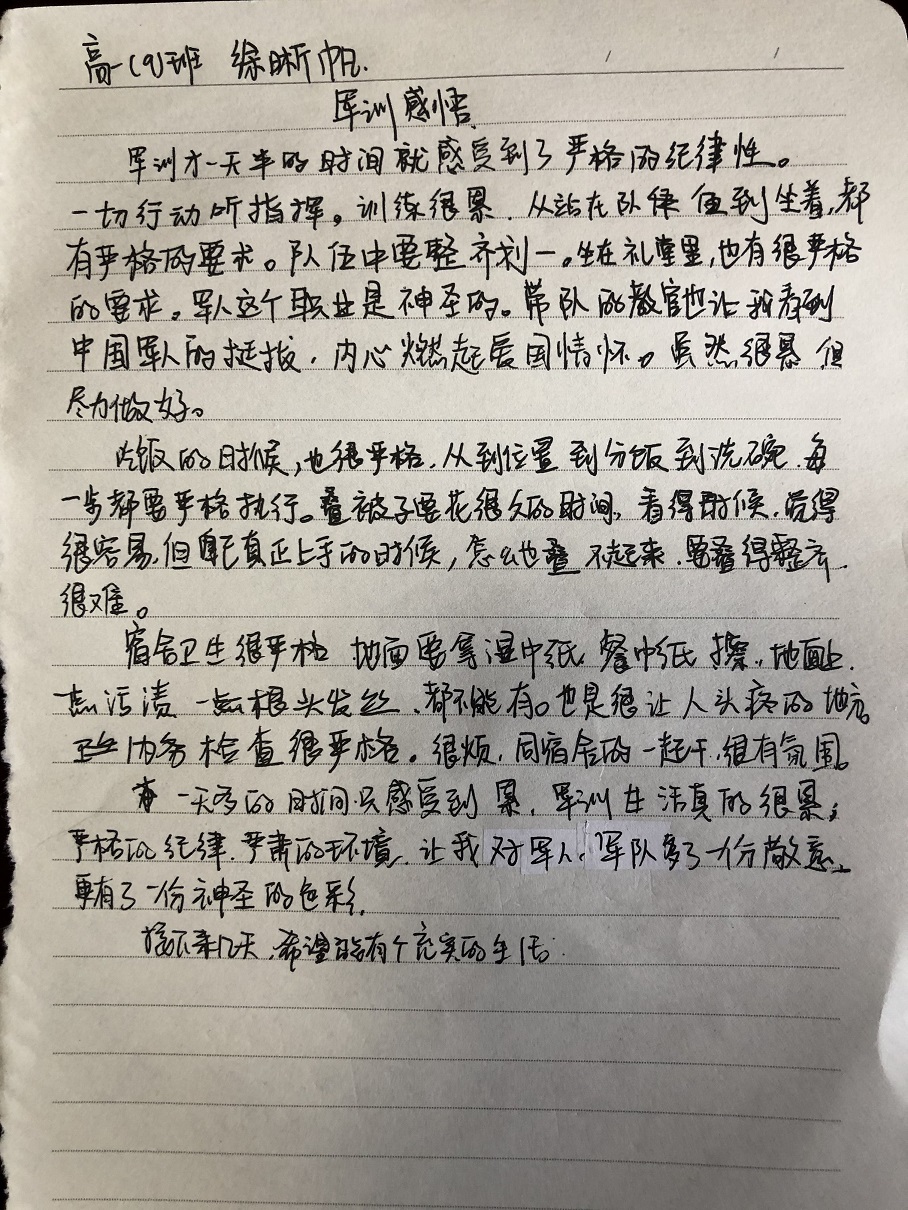 高一(9)班 徐晰帆.
军训感悟
军训才一天半的时间就感受到了严格的纪律性。
一切行动听指挥。训练很累.从站在队伍到坐着,都
有严格的要求。队伍中要整齐划一。坐在礼堂里,也有很严格
的要求。军人这个职业是神圣的。带队的教官也让我看到
中国军人的挺拔.内心燃起爱国情怀。虽然很累 但
尽力做好。
吃饭的时候,也很严格.从到位置到分饭到洗碗.每
一步都要严格执行。叠被子要花很久的时间.看得时候.觉得
很容易,但真正上手的时候,怎么也叠不起来.要叠得整齐.
很难。
宿舍卫生很严格 地面要拿湿巾纸.餐巾纸擦.地面上.
点污渍 一点根头发丝.都不能有。也是很让人头疼的地方
内务检查很严格。很烦,同宿舍的一起干,很有氛围。
一天多的时间只感受到累.军训生活真的很累;
严格的纪律.严肃的环境.让我对军人.军队多了一份敬意.
更有了一份神圣的色彩.
接下来几天.希望能有个充实的生活.